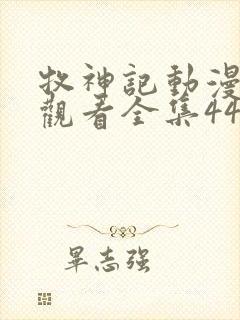 牧神記動漫
觀看全集44
畢志強